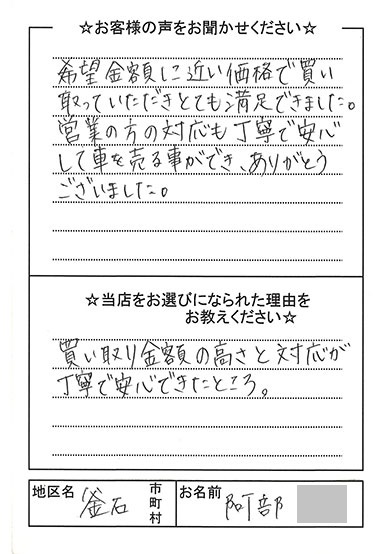 ☆お客様の声をお聞かせください☆
希望金額に近い価格で買い
取っていただきとても満足できました。
営業の方の対応も丁寧で安心
して車を売る事ができ、ありがとう
ございました。
☆当店をお選びになられた理由を
お教えください☆
買い取り金額の高さと対応が
丁寧で安心できたところ。
地区名 釜石 市町村 お名前 阿部